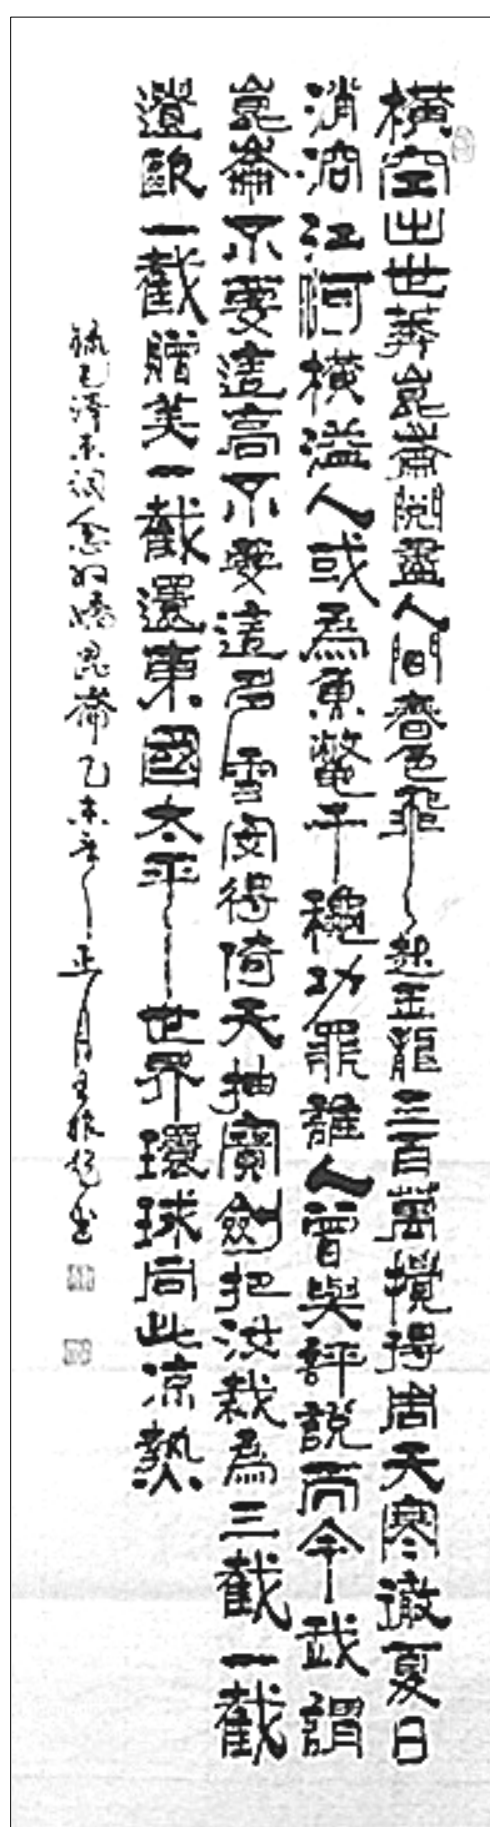 橫空出世莽崑崙閱盡人間春色飛起玉龍三百萬攪得周天寒徹夏日
消溶江河橫溢人或為魚鱉千穐功罪誰人曾與評說而今我謂
崑崙不要這高不要這多雪安得倚天抽寶劍把汝裁為三截一截
遺歐一截贈美一截還東國太平世界環球同此涼熱
錄毛澤東詞念奴嬌昆崙乙未年正月王振書